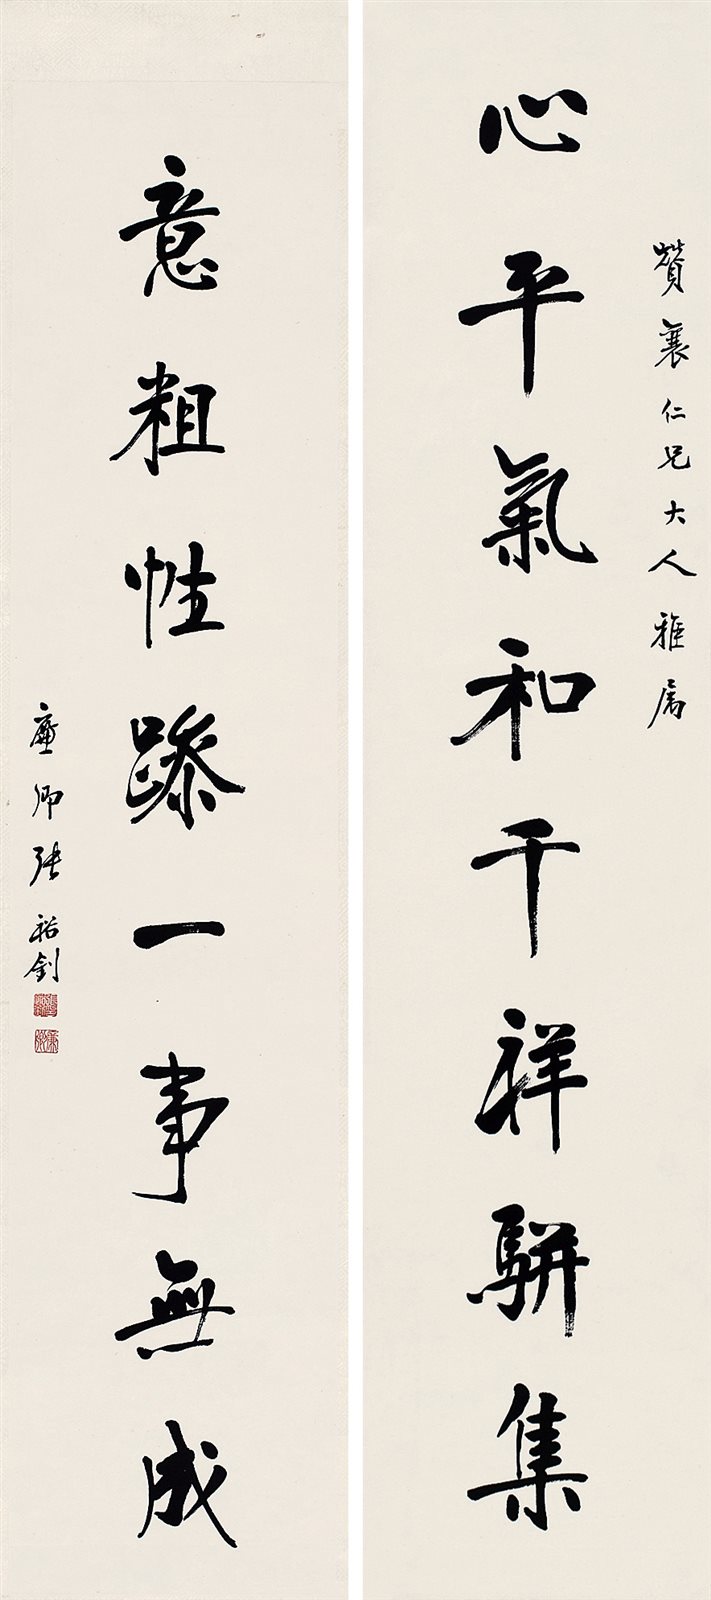 贊襄仁兄大人雅属
心平氣和千祥駢集
意粗性躁一事無成
廉卿張裕釗